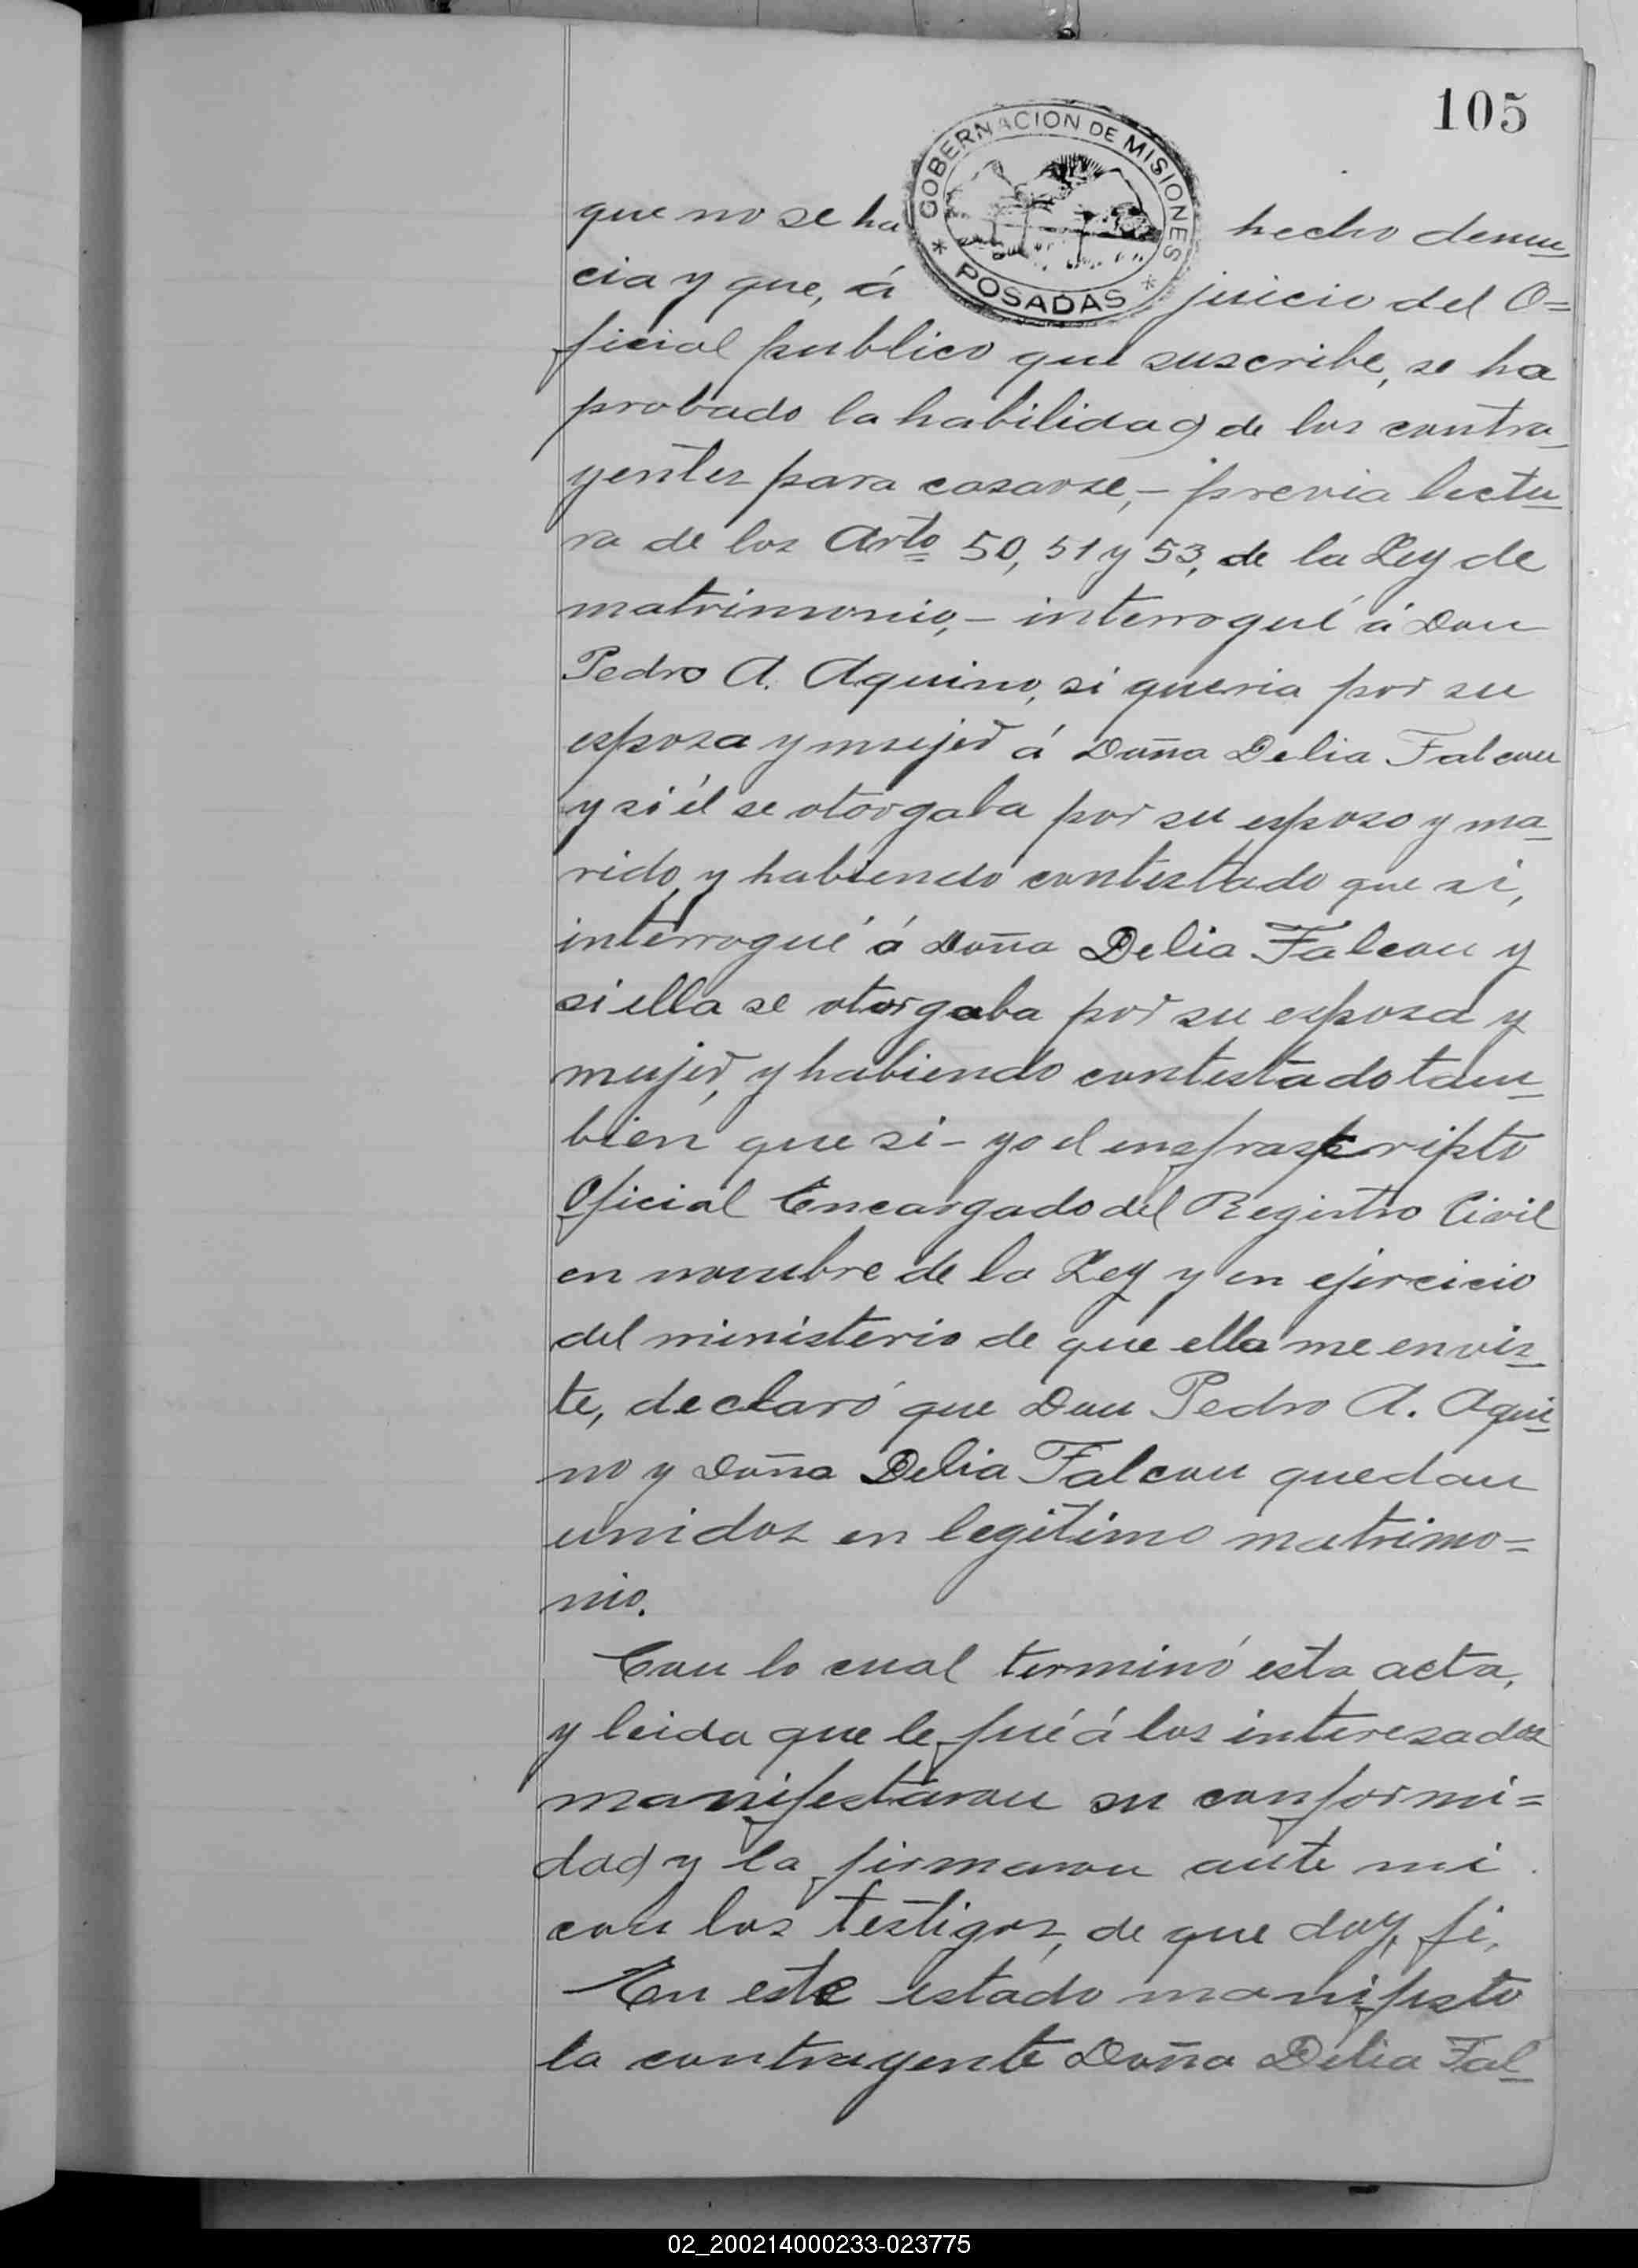 105
GOBERNACION DE MISIONES
* POSADAS *
que no se ha hecho denun
cia y que, á juicio del O=
ficial publico que suscribe, se ha
probado la habilidad de los contra
yentes para casarse,- previa lectu
ra de los Arto 50, 51 y 53, de la Ley de
matrimonio,- interrogué á Don
Pedro A. Aquino, si queria por su
esposa y mujer á Doña Delia Falcon
y si él se otorgaba por su esposo y ma
rido, y habiendo contestado que si,
interrogué á Doña Delia Falcon y
si ella se otorgaba por su esposa y
mujer, y habiendo contestado tam
bien que si - yo el infrascripto
Oficial Encargado del Registro Civil
en nombre de la Ley y en ejercicio
del ministerio de que ella me envis
te, declaró que Don Pedro A. Aqui
no y Doña Delia Falcon quedan
unidos en legitimo matrimo=
nio.
Con lo cual terminó esta acta,
y leida que le fué á los interesados
manifestaron su conformi=
dad y la firmaron ante mi
con los testigos, de que doy fé.
En este estado manifesto
la contrayente Doña Delia Fal
02_200214000233-023775